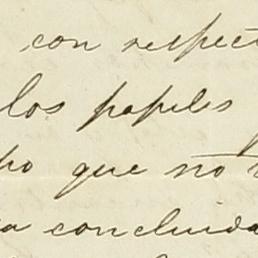 con respect
los papeles
po que no
a concluida